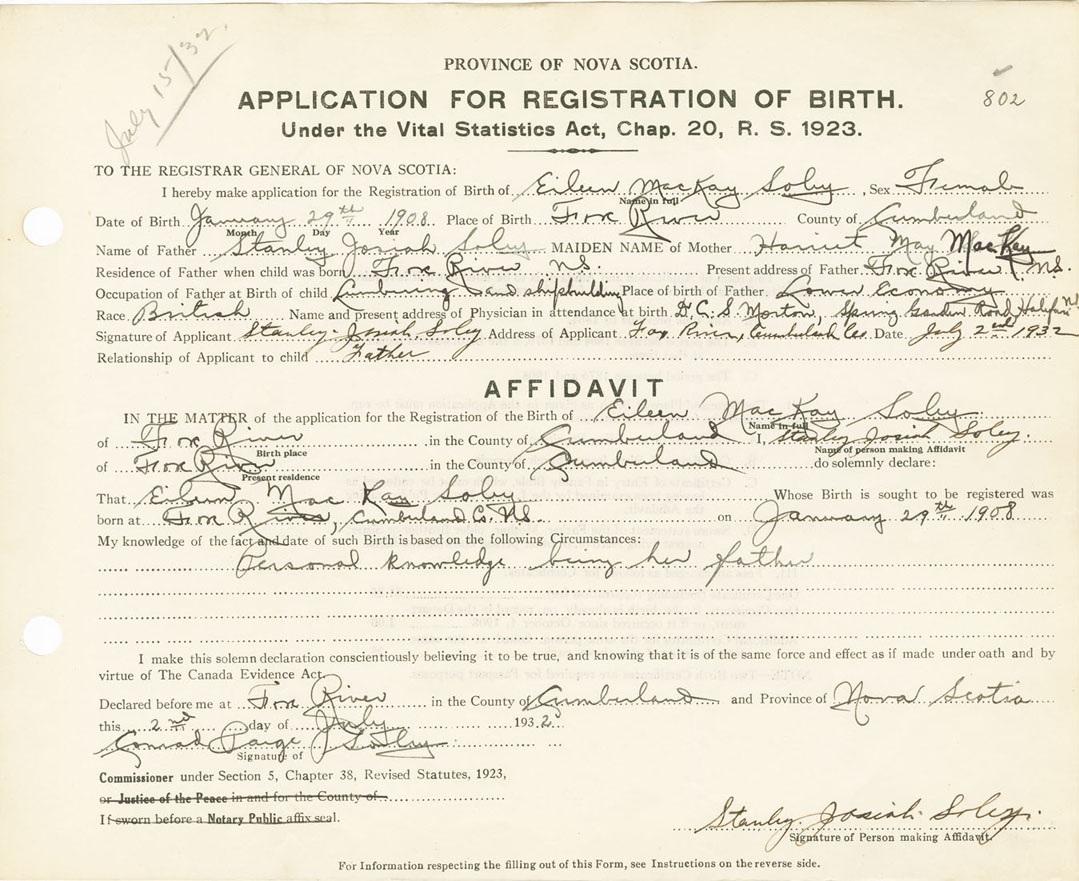 July 15/32.
PROVINCE OF NOVA SCOTIA.
802
APPLICATION FOR REGISTRATION OF BIRTH.
Under the Vital Statistics Act, Chap. 20, R. S. 1923.
TO THE REGISTRAR GENERAL OF NOVA SCOTIA:
I hereby make application for the Registration of Birth of Eileen MacKay Soley, Sex Female
Name in full
Date of Birth January 29th 1908. Place of Birth Fox River County of Cumberland
Month Day Year
Name of Father Stanley Josiah Soley MAIDEN NAME of Mother Harriet May MacKay
Residence of Father when child was born Fox River N.S. Present address of Father Fox River, N.S.
Occupation of Father at Birth of child Lumbering and shipbuilding Place of birth of Father Lower Economy
Race British Name and present address of Physician in attendance at birth Dr. C. S. Morton, Spring Garden Road Halifax N.S.
Signature of Applicant Stanley Josiah Soley Address of Applicant Fox River, Cumberland Co. Date July 2nd 1932
Relationship of Applicant to child Father
AFFIDAVIT
IN THE MATTER of the application for the Registration of the Birth of Eileen MacKay Soley
Name in full
of Fox River in the County of Cumberland I, Stanley Josiah Soley.
Birth place Name of person making Affidavit
of Fox River in the County of Cumberland do solemnly declare:
Present residence
That Eileen MacKay Soley Whose Birth is sought to be registered was
born at Fox River, Cumberland Co. N.S. on January 29th 1908
My knowledge of the fact and date of such Birth is based on the following Circumstances:
Personal knowledge being her father
I make this solemn declaration conscientiously believing it to be true, and knowing that it is of the same force and effect as if made under oath and by
virtue of The Canada Evidence Act.
Declared before me at Fox River in the County of Cumberland and Province of Nova Scotia
this 2nd day of July 1932.
Conrad Paige Soley
Signature of
Commissioner under Section 5, Chapter 38, Revised Statutes, 1923,
or Justice of the Peace in and for the County of
If sworn before a Notary Public affix seal.
Stanley Josiah Soley.
Signature of Person making Affidavit.
For Information respecting the filling out of this Form, see Instructions on the reverse side.